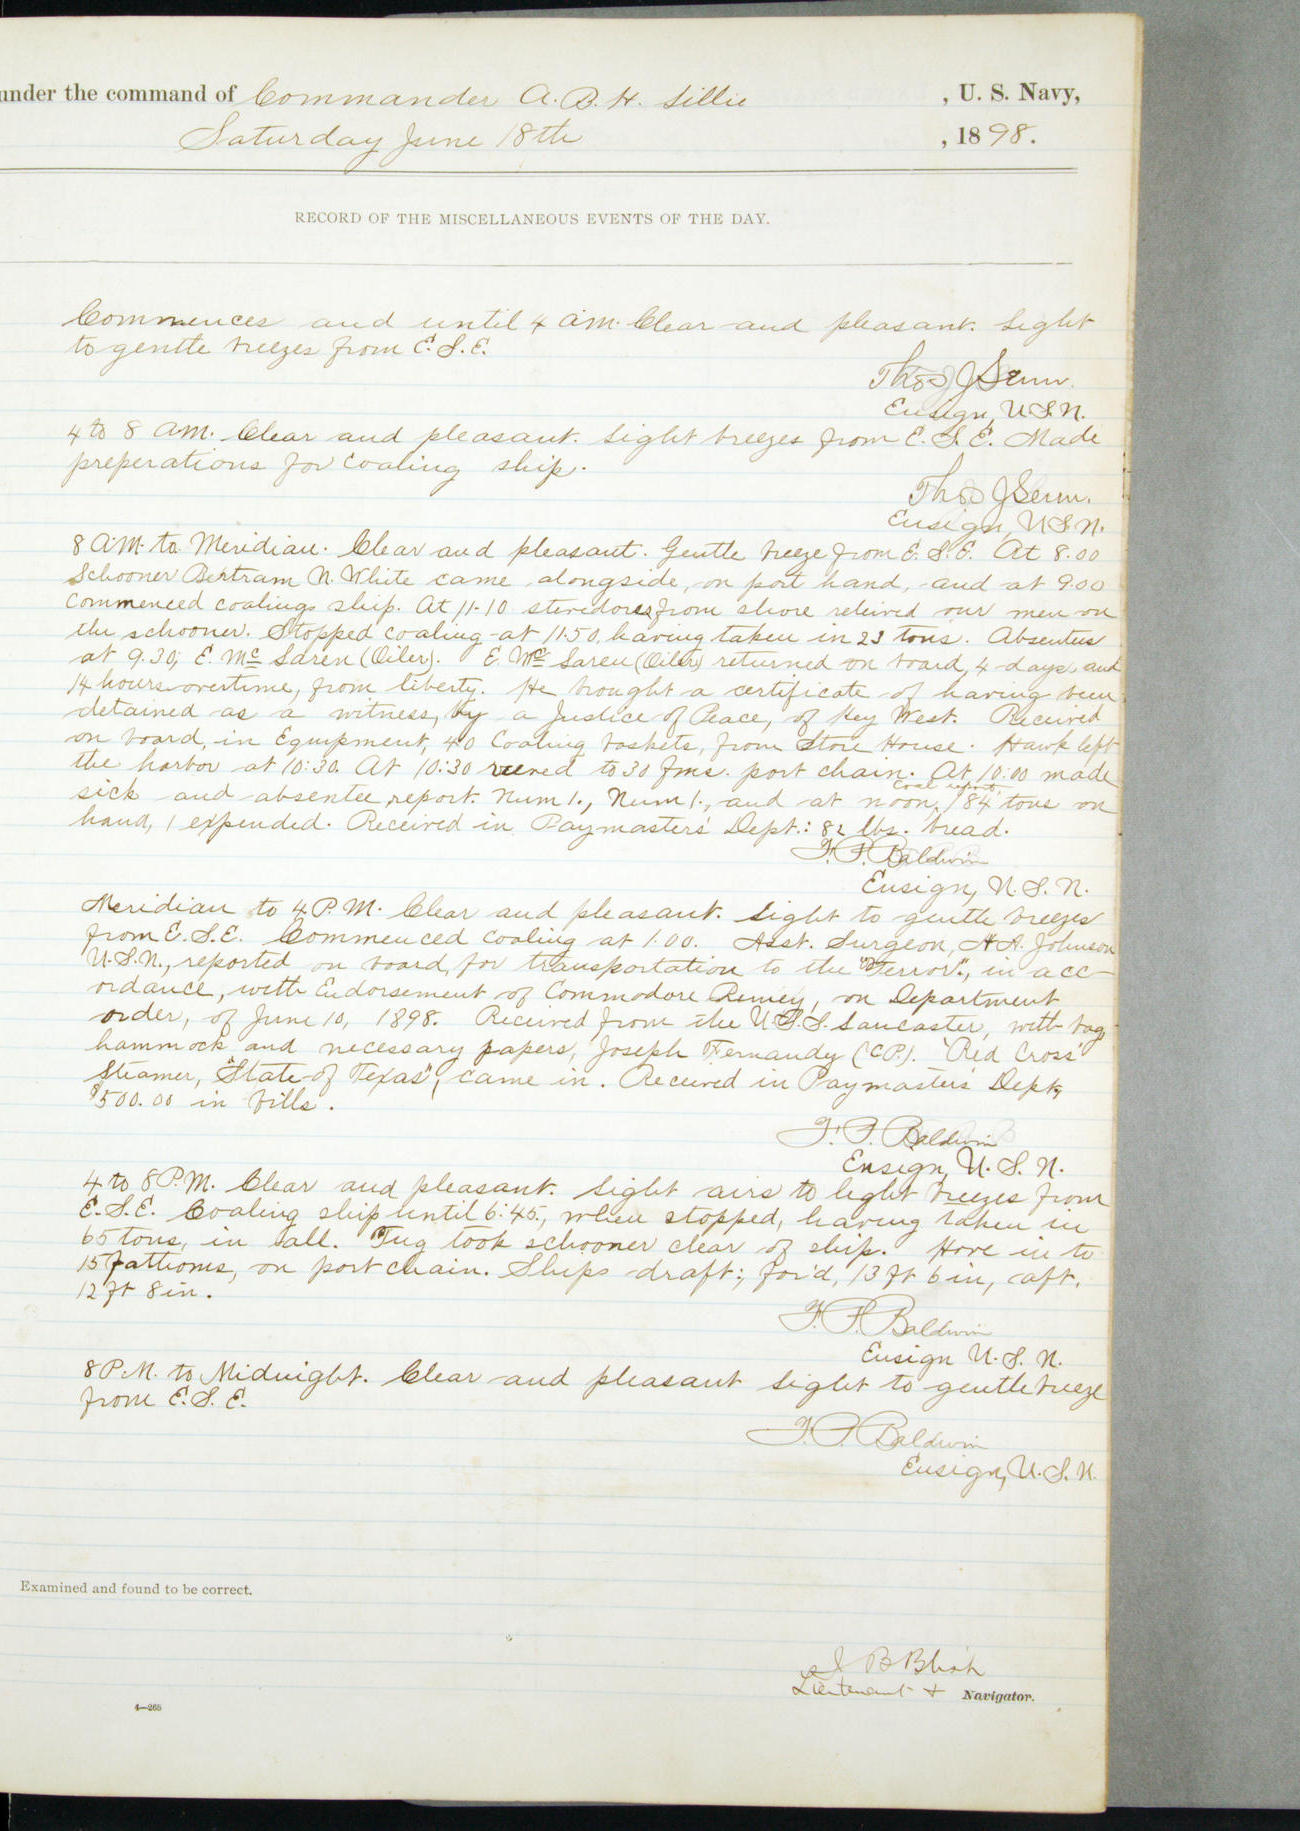 under the command of Commander A. B. H. Lillie , U. S. Navy,
Saturday June 18th , 1898.
RECORD OF THE MISCELLANEOUS EVENTS OF THE DAY.
Commences and until 4 a.m. Clear and pleasant. Light
to gentle breezes from E. S. E.
Thos J Senn.
Ensign, U.S.N.
4 to 8 a.m. Clear and pleasant. Light breezes from E. S. E. Made
preperations for coaling ship.
Thos J Senn.
Ensign, U.S.N.
8 A.M. to Meridian. Clear and pleasant. Gentle breeze from E. S. E. At 8.00
Schooner Bertram N. White came alongside, on port hand, and at 9.00
commenced coaling ship. At 11.10 stevedores from shore releived our men on
the schooner. Stopped coaling at 11.50, having taken in 23 tons. Absentees
at 9.30; E. Mc Laren (Oiler). E. Mc Laren (Oiler) returned on board, 4 days and
14 hours overtime, from liberty. He brought a certificate of having been
detained as a witness, by a Justice of Peace, of Key West. Received
on board, in Equipment, 40 Coaling baskets, from Store House. Hawk left
the harbor at 10:30. At 10:30 veered to 30 fms. port chain. At 10:00 made
sick and absentee report. Num 1., Num 1., and at noon, coal report, 84 tons on
hand, 1 expended. Received in Paymasters' Dept.: 82 lbs. bread.
F. P. Baldwin
Ensign, U. S. N.
Meridian to 4 P.M. Clear and pleasant. Light to gentle breezes
from E. S. E. Commenced coaling at 1.00. Asst. Surgeon, A. Johnson
U.S.N., reported on board, for transportation to the "Terror", in acc-
ordance, with Endorsement of Commodore Remey, on Department
order, of June 10, 1898. Received, from the U.S.S. Lancaster, with bag
hammock and necessary papers, Joseph Fernandy (C.P.). "Red Cross"
Steamer, "State of Texas", came in. Received in Paymasters' Dept,
$500.00 in bills.
F. P. Baldwin
Ensign, U. S. N.
4 to 8 P.M. Clear and pleasant. Light airs to light breezes from
E. S. E. Coaling ship until 6:45, when stopped, having taken in
65 tons, in all. Tug took schooner clear of ship. Hove in to
15 fathoms, on port chain. Ships draft; for'd, 13 ft 6 in, aft,
12 ft 8 in.
F. P. Baldwin
Ensign U. S. N.
8 P.M. to Midnight. Clear and pleasant Light to gentle breeze
from E. S. E.
F. P. Baldwin
Ensign, U. S. N.
Examined and found to be correct.
J B Blish
Lieutenant & Navigator.
4—265